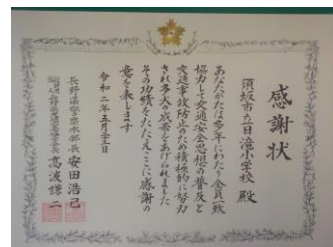 感謝状
須坂市立日滝小学校 殿
あなたがたは多年にわたり全員一致
協力して交通安全思想の普及と
交通事故防止のため積極的に努力
され多大の成果をあげられました
その功績をたたえここに感謝の
意を表します
令和二年五月二十三日
長野県警察本部長 安田浩己
高波謙二